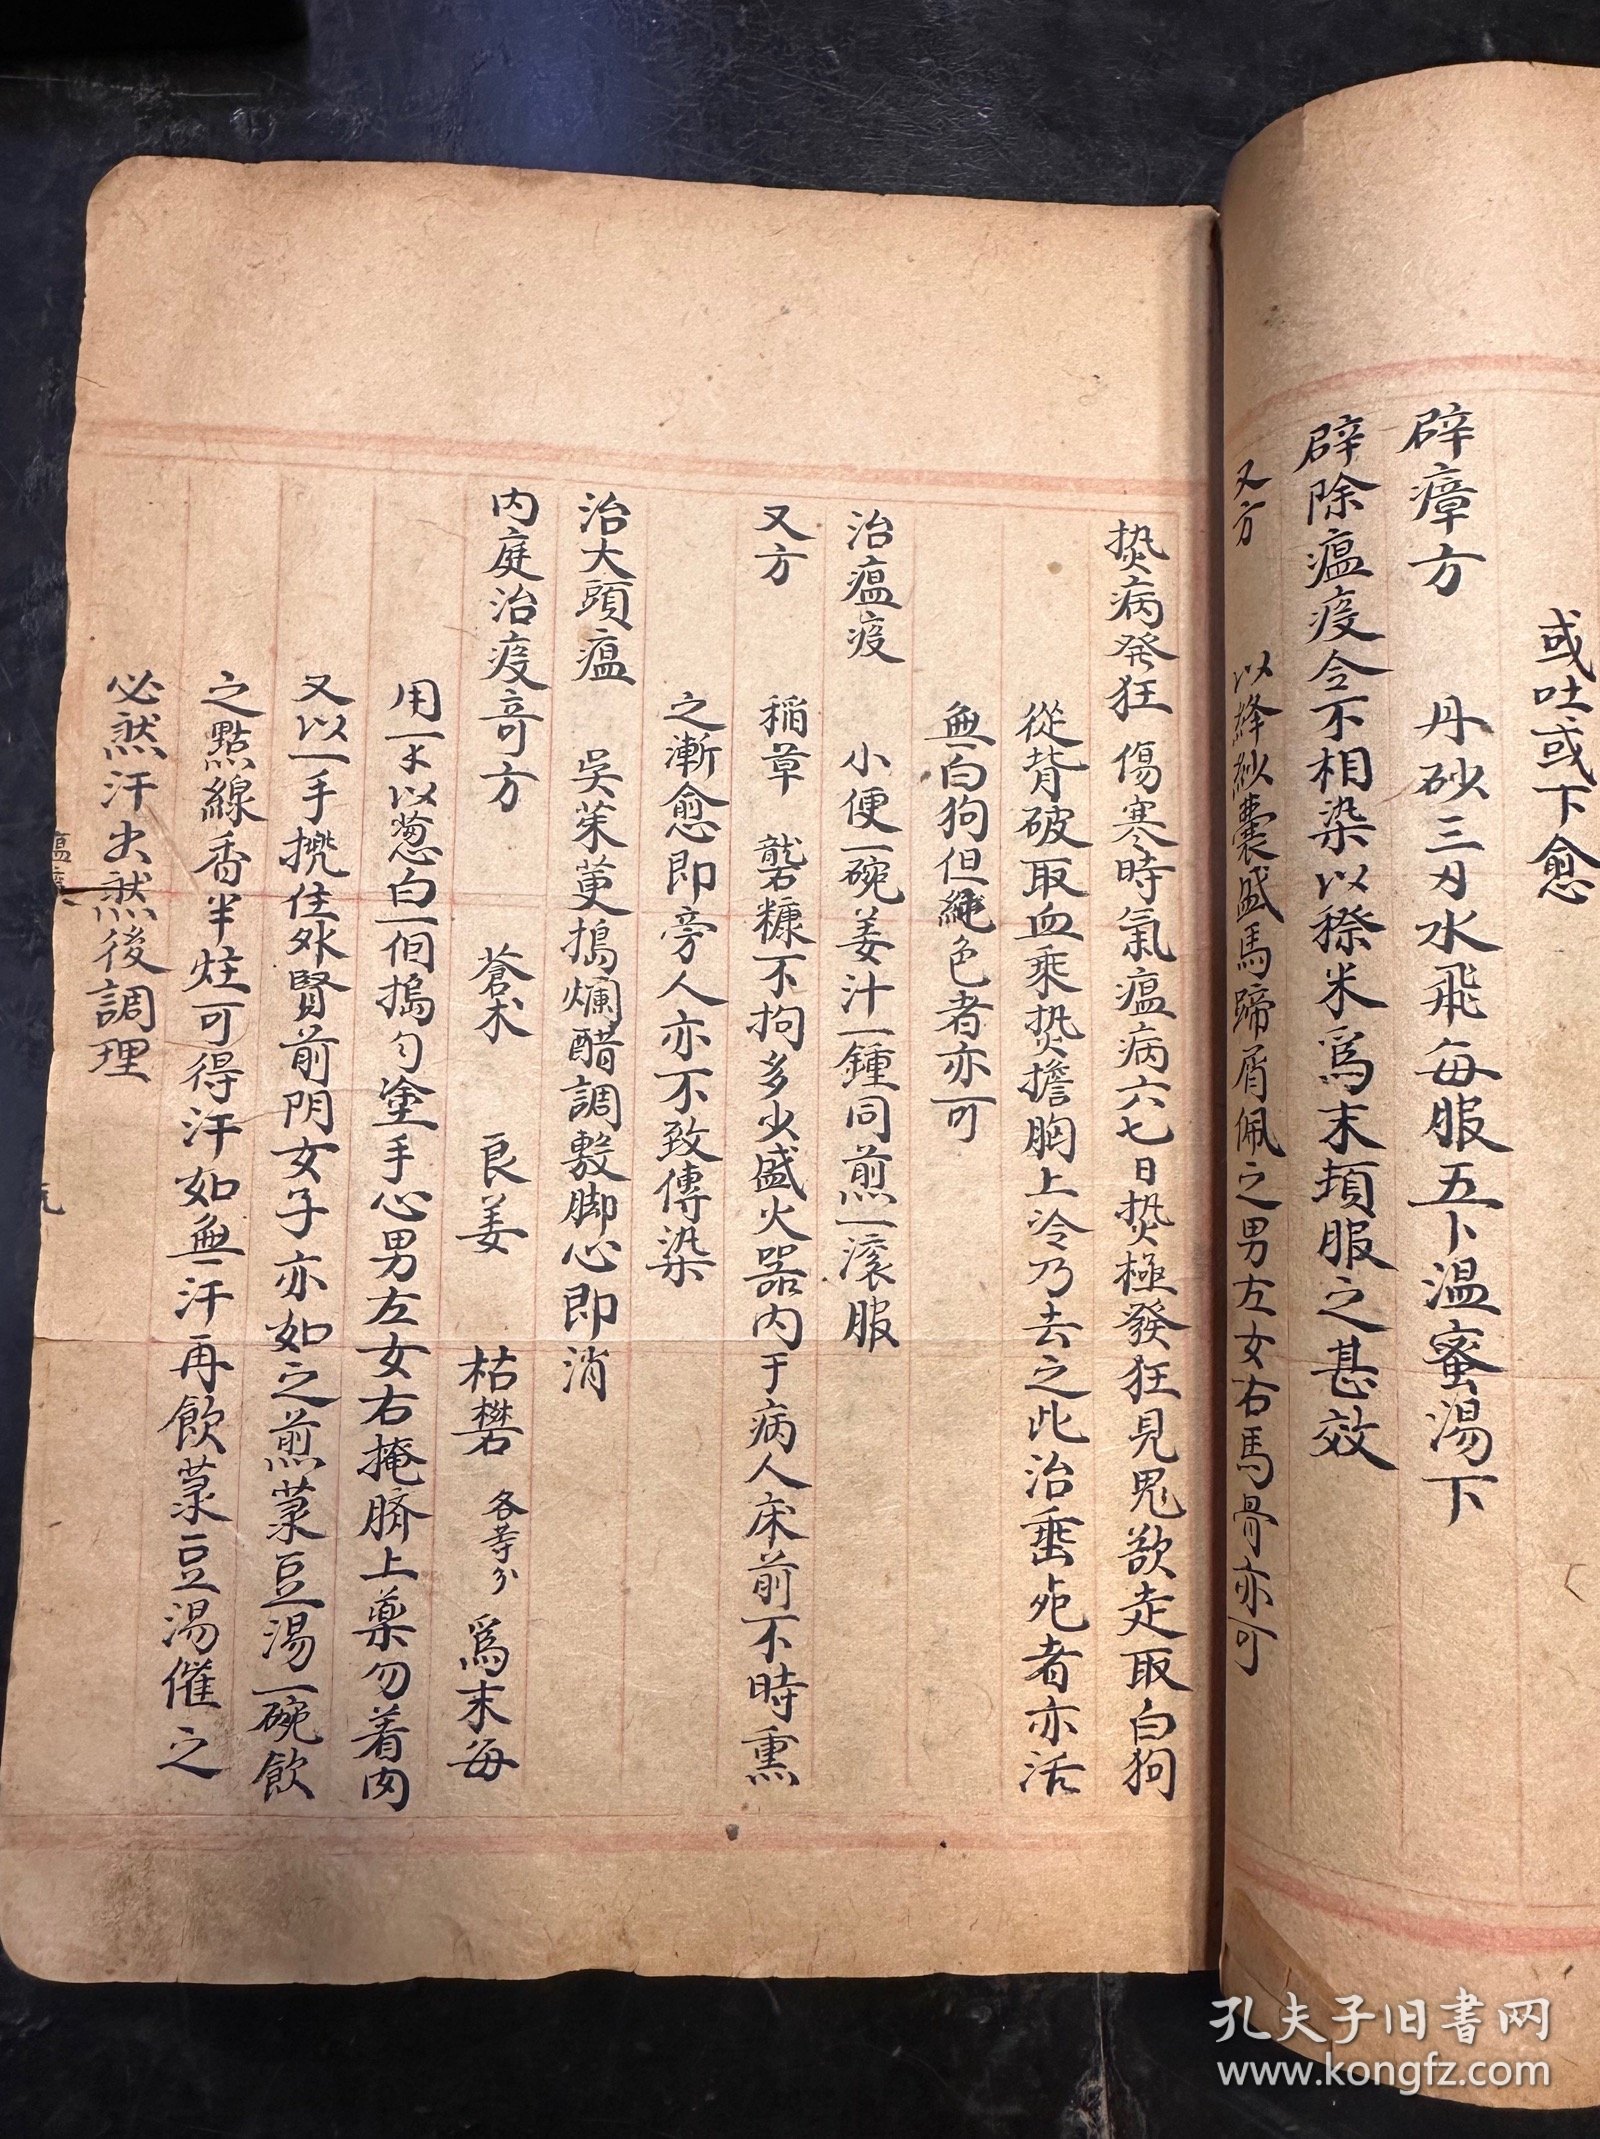 或吐或下愈
辟瘴方 丹砂三刄水飛每服五卜温蜜湯下
辟除瘟疫令不相染以穄米爲末頓服之甚效
又方 以絳紗囊盛馬蹄屑佩之男左女右馬骨亦可
𤍠病発狂 傷寒時氣瘟病六七日𤍠極發狂見鬼欲走取白狗
從背破取血乘𤍠擔胸上冷乃去之此治垂死者亦活
無白狗但純色者亦可
治瘟疫 小便一碗姜汁一鍾同煎一滚服
又方 稻草 礱糠不拘多少盛火器内于病人床前不時熏
之漸愈即旁人亦不致傳染
治大頭瘟 吳茱萸搗爛醋調敷脚心即消
内庭治疫竒方 蒼术 良姜 枯礬 各等分 爲末每
用一以葱白一個搗勻塗手心男左女右掩臍上藥勿着肉
又以一手攪住外腎前阴女子亦如之煎菉豆湯一碗飲
之點線香半炷可得汗如無汗再飲菉豆湯催之
必然汗出然後調理
孔夫子旧书网
www.kongfz.com